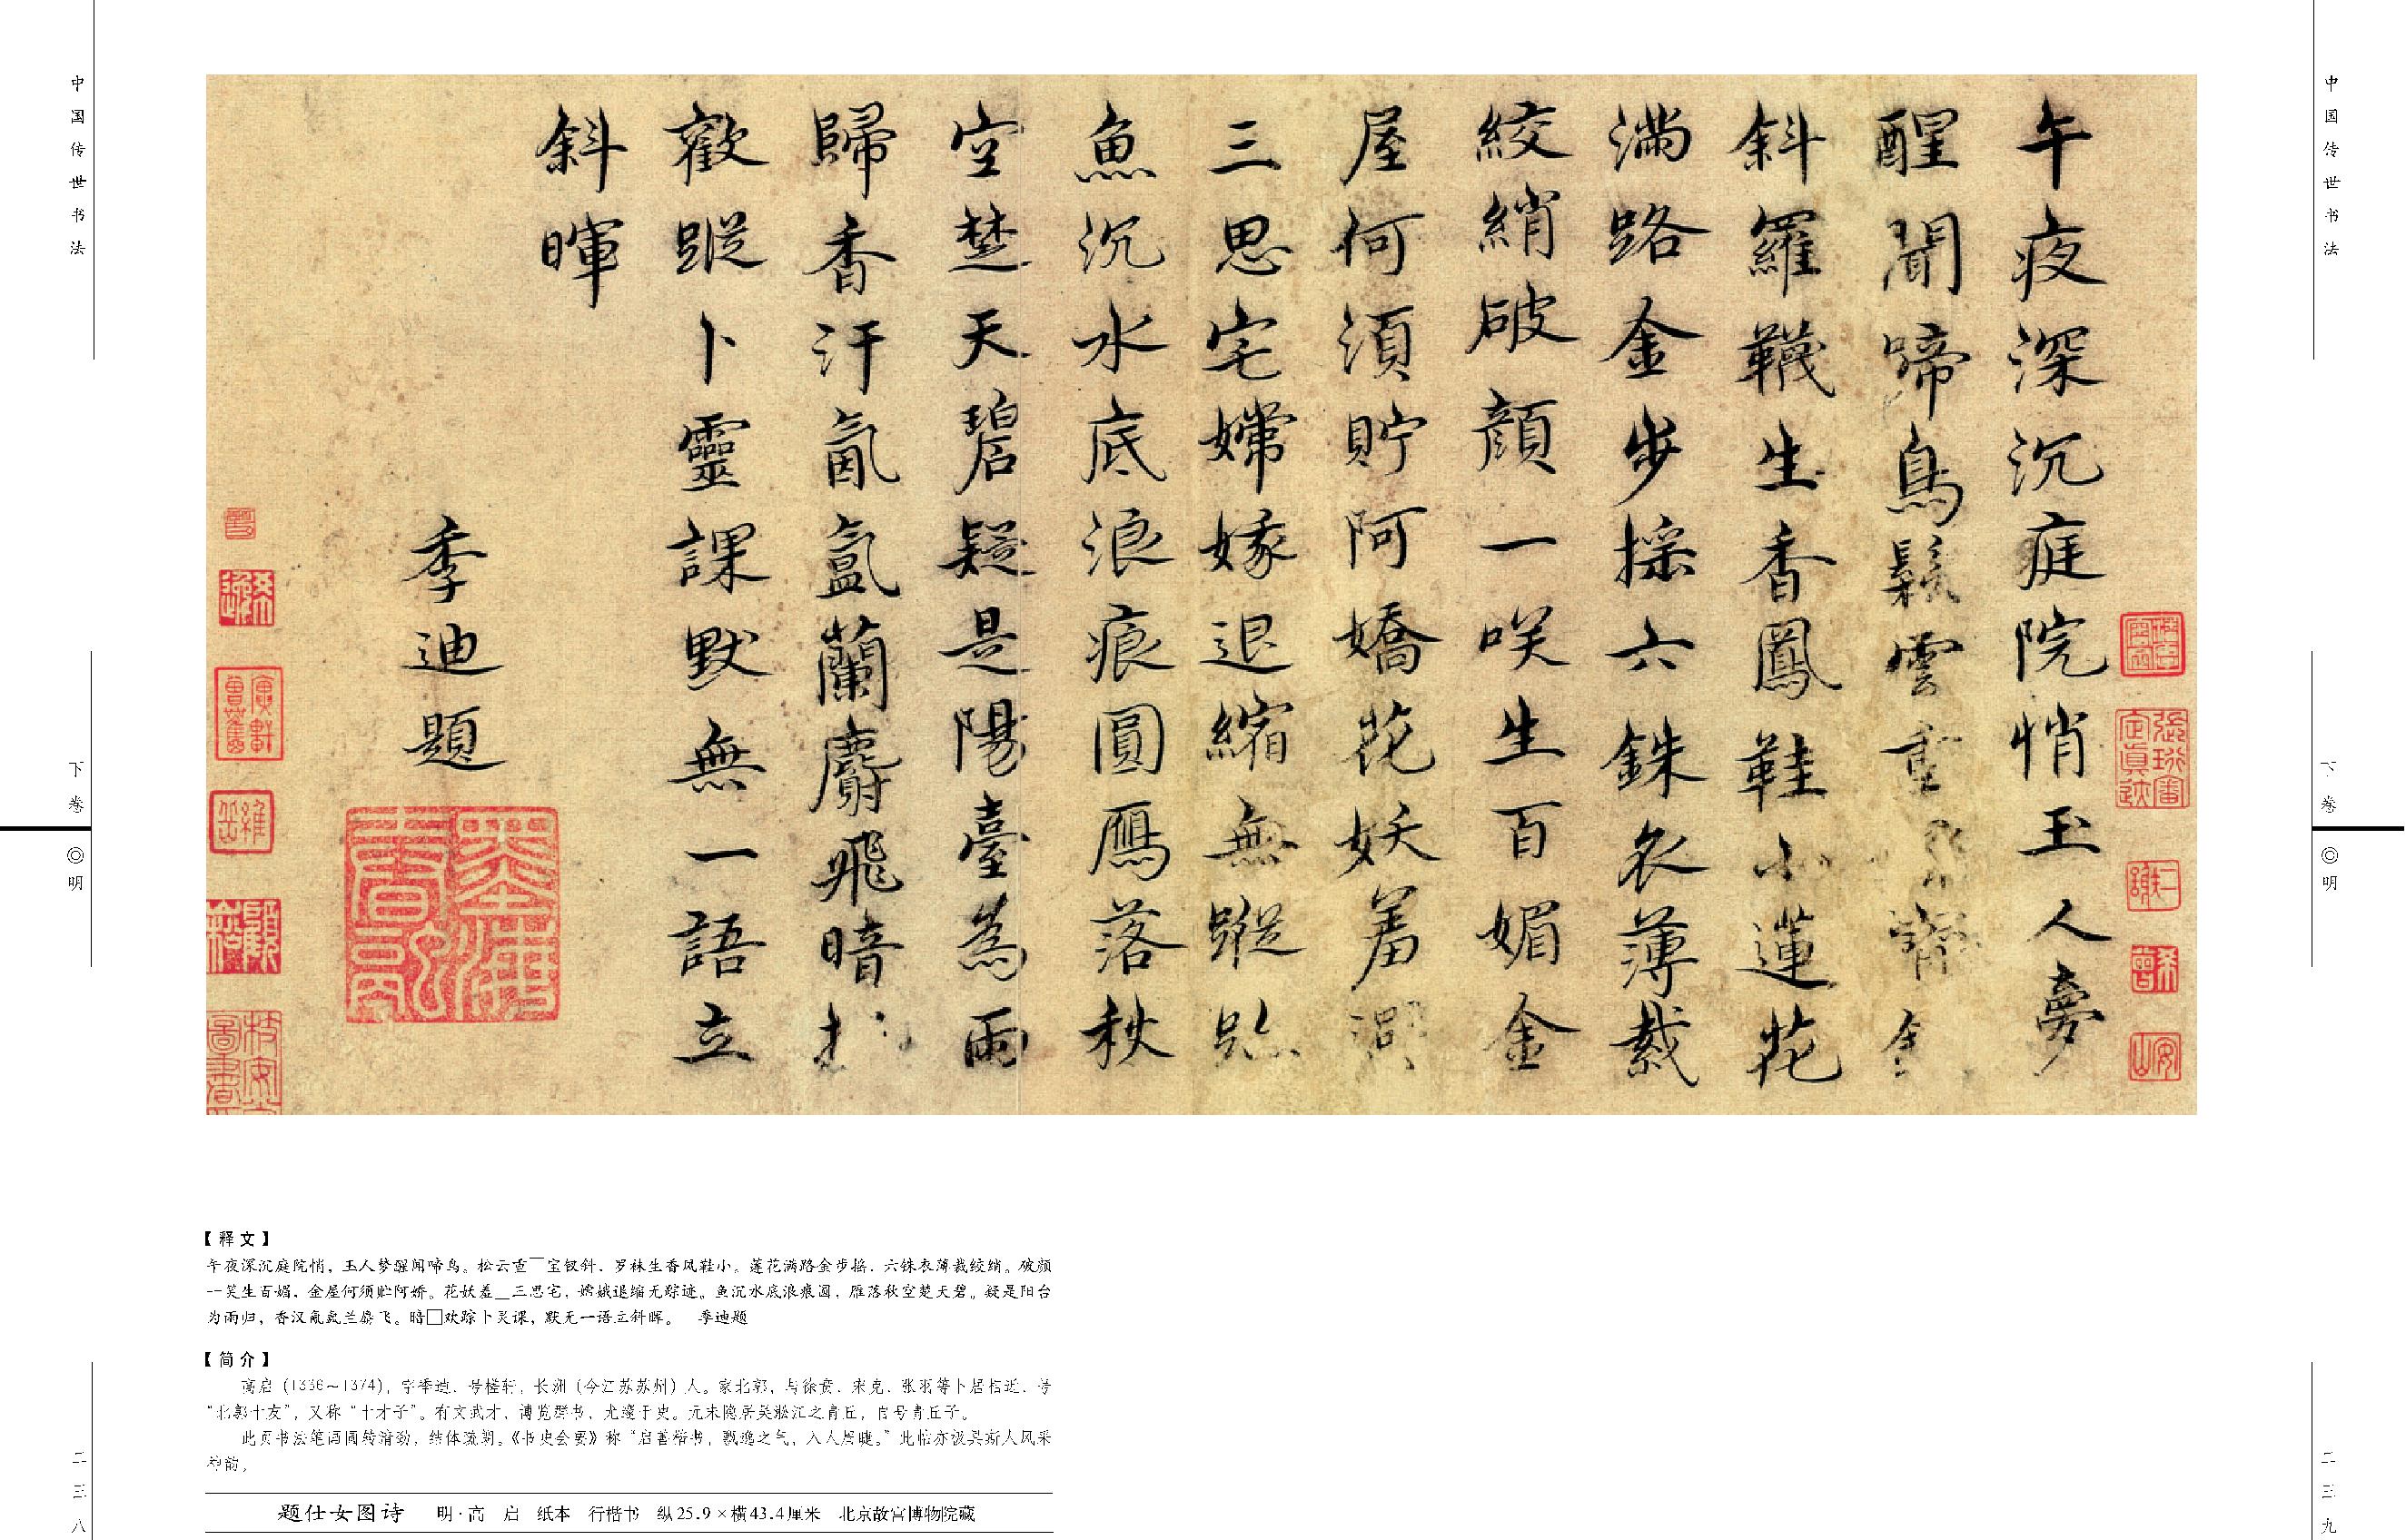 午夜深沉庭院悄玉人夢
醒聞啼鳥鬆雲重
斜羅韈生香鳳鞋小蓮花
滿路金步搖六銖衣薄裁
絞綃破顏一咲生百媚金
屋何須貯阿嬌花妖羞
三思宅嫦娥退縮無蹤跡
魚沉水底浪痕圓鴈落秋
空楚天碧疑是陽臺為雨
歸香汗氤氳蘭麝飛暗
歡蹤卜靈課默無一語立
斜暉
季迪題
中国传世书法
下卷◎明
二三八
中国传世书法
下卷◎明
二三九
【释文】
午夜深沉庭院悄，玉人梦醒闻啼鸟。松云重__宝钗斜，罗袜生香凤鞋小。莲花满路金步摇，六铢衣薄裁绞绡。破颜
一笑生百媚，金屋何须贮阿娇。花妖羞__三思宅，嫦娥退缩无踪迹。鱼沉水底浪痕圆，雁落秋空楚天碧。疑是阳台
为雨归，香汉氤氲兰麝飞。暗□欢踪卜灵课，默无一语立斜晖。 季迪题
【简介】
高启（1336～1374），字季迪，号槎轩，长洲（今江苏苏州）人。家北郭，与徐贲、宋克、张羽等卜居相近，号
“北郭十友”，又称“十才子”。有文武才，博览群书，尤邃于史。元末隐居吴淞江之青丘，自号青丘子。
此页书法笔画圆转清劲，结体疏朗。《书史会要》称“启善楷书，飘逸之气，入人眉睫。”此帖亦诚具斯人风采
神韵。
题仕女图诗 明·高 启 纸本 行楷书 纵25.9×横43.4厘米 北京故宫博物院藏